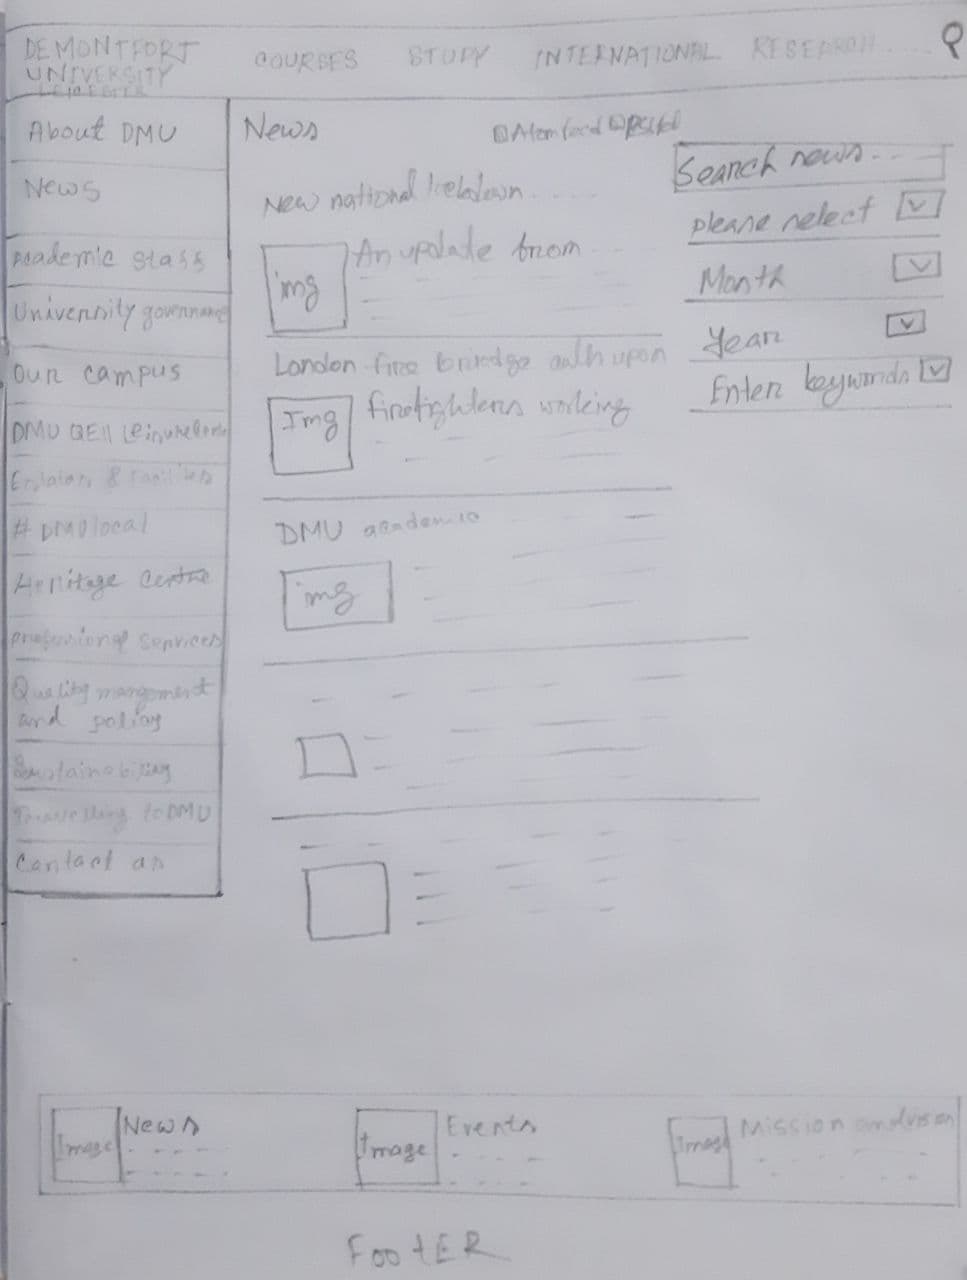 DEMONTFORT
UNIVERSITY
LEICESTER
COURSES STUDY INTERNATIONAL RESEARCH....
About DMU
News
Academic staff
University governance
Our campus
DMU QEII
&
# DMU local
Heritage Centre
professional services
Quality mangement
and policy
Sustainability
Travelling to DMU
Contact us
News
@Atom feed
New national lockdown.....
img
An update from ...
London fire bridge
upon
Img
firefighters working
DMU academic
img
Search news...
please select
Month
Year
Enter keywords
Image
News
Image
Events
Image
Mission and vision
FOOTER